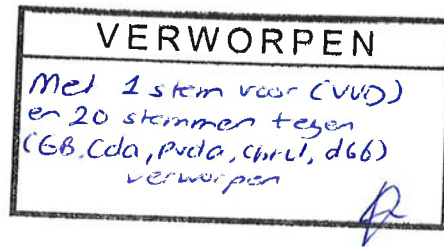 VERWORPEN
Met 1 stem voor (VVD)
en 20 stemmen tegen
(GB, Cda, Pvda, ChrU, d66)
verworpen